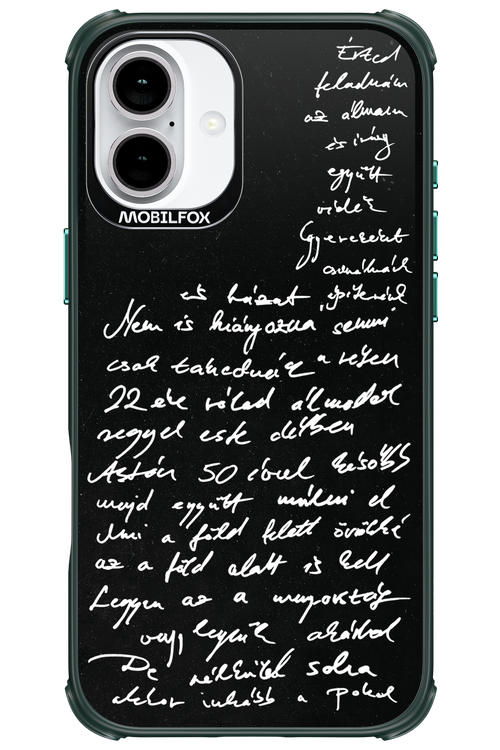 MOBILFOX
Érted
feladnám
az álmaim
és így
együtt
vidék
Gyerekeket
csinálnánk
és házat építenénk
Nem is hiányozna semmi
csak takednánk a réten
22 éve rólad álmodok
reggel este délben
Aztán 50 évvel később
majd együtt múlni el
Ami a föld felett örökké
az a föld alatt is kell
Legyen az a mennyország
vagy legyünk akárhol
De nélküled soha
akkor inkább a Pokol